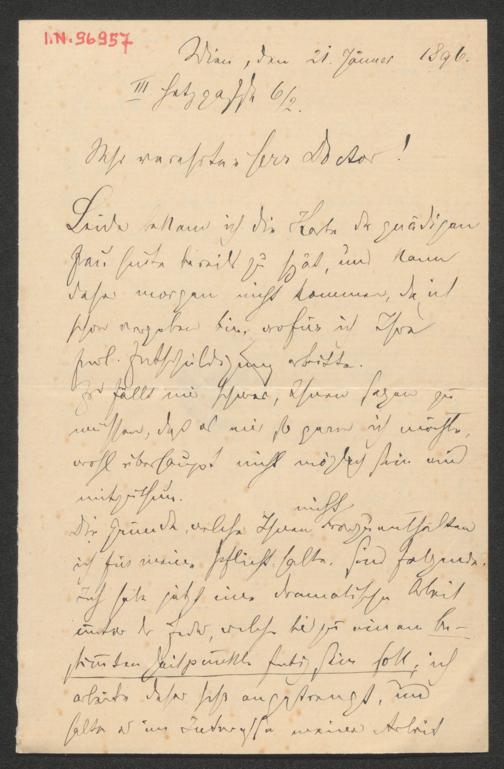 I.N. 96957
Wien, den 21. Jänner 1896.
III Hetzgasse 6/2.
Sehr verehrter Herr Doctor!
Leider bekam ich die Karte der gnädigen
Frau heute bereits zu spät, und kann
daher morgen nicht kommen, da ich
schon vergeben bin, wofür ich Ihre
frdl. Entschuldigung erbitte.
Es fällt mir schwer, Ihnen sagen zu
müssen, daß es mir so gern ich möchte,
wohl überhaupt nicht möglich sein wird
mitzuthun.
nicht
Die Gründe, welche Ihnen vorzuenthalten
ich für meine Pflicht halte, sind folgende.
Ich habe jetzt eine dramatische Arbeit
unter der Feder, welche bis zu einem be-
stimmten Zeitpunkte fertig sein soll, ich
arbeite daher sehr angestrengt, und
halte es im Interesse meiner Arbeit